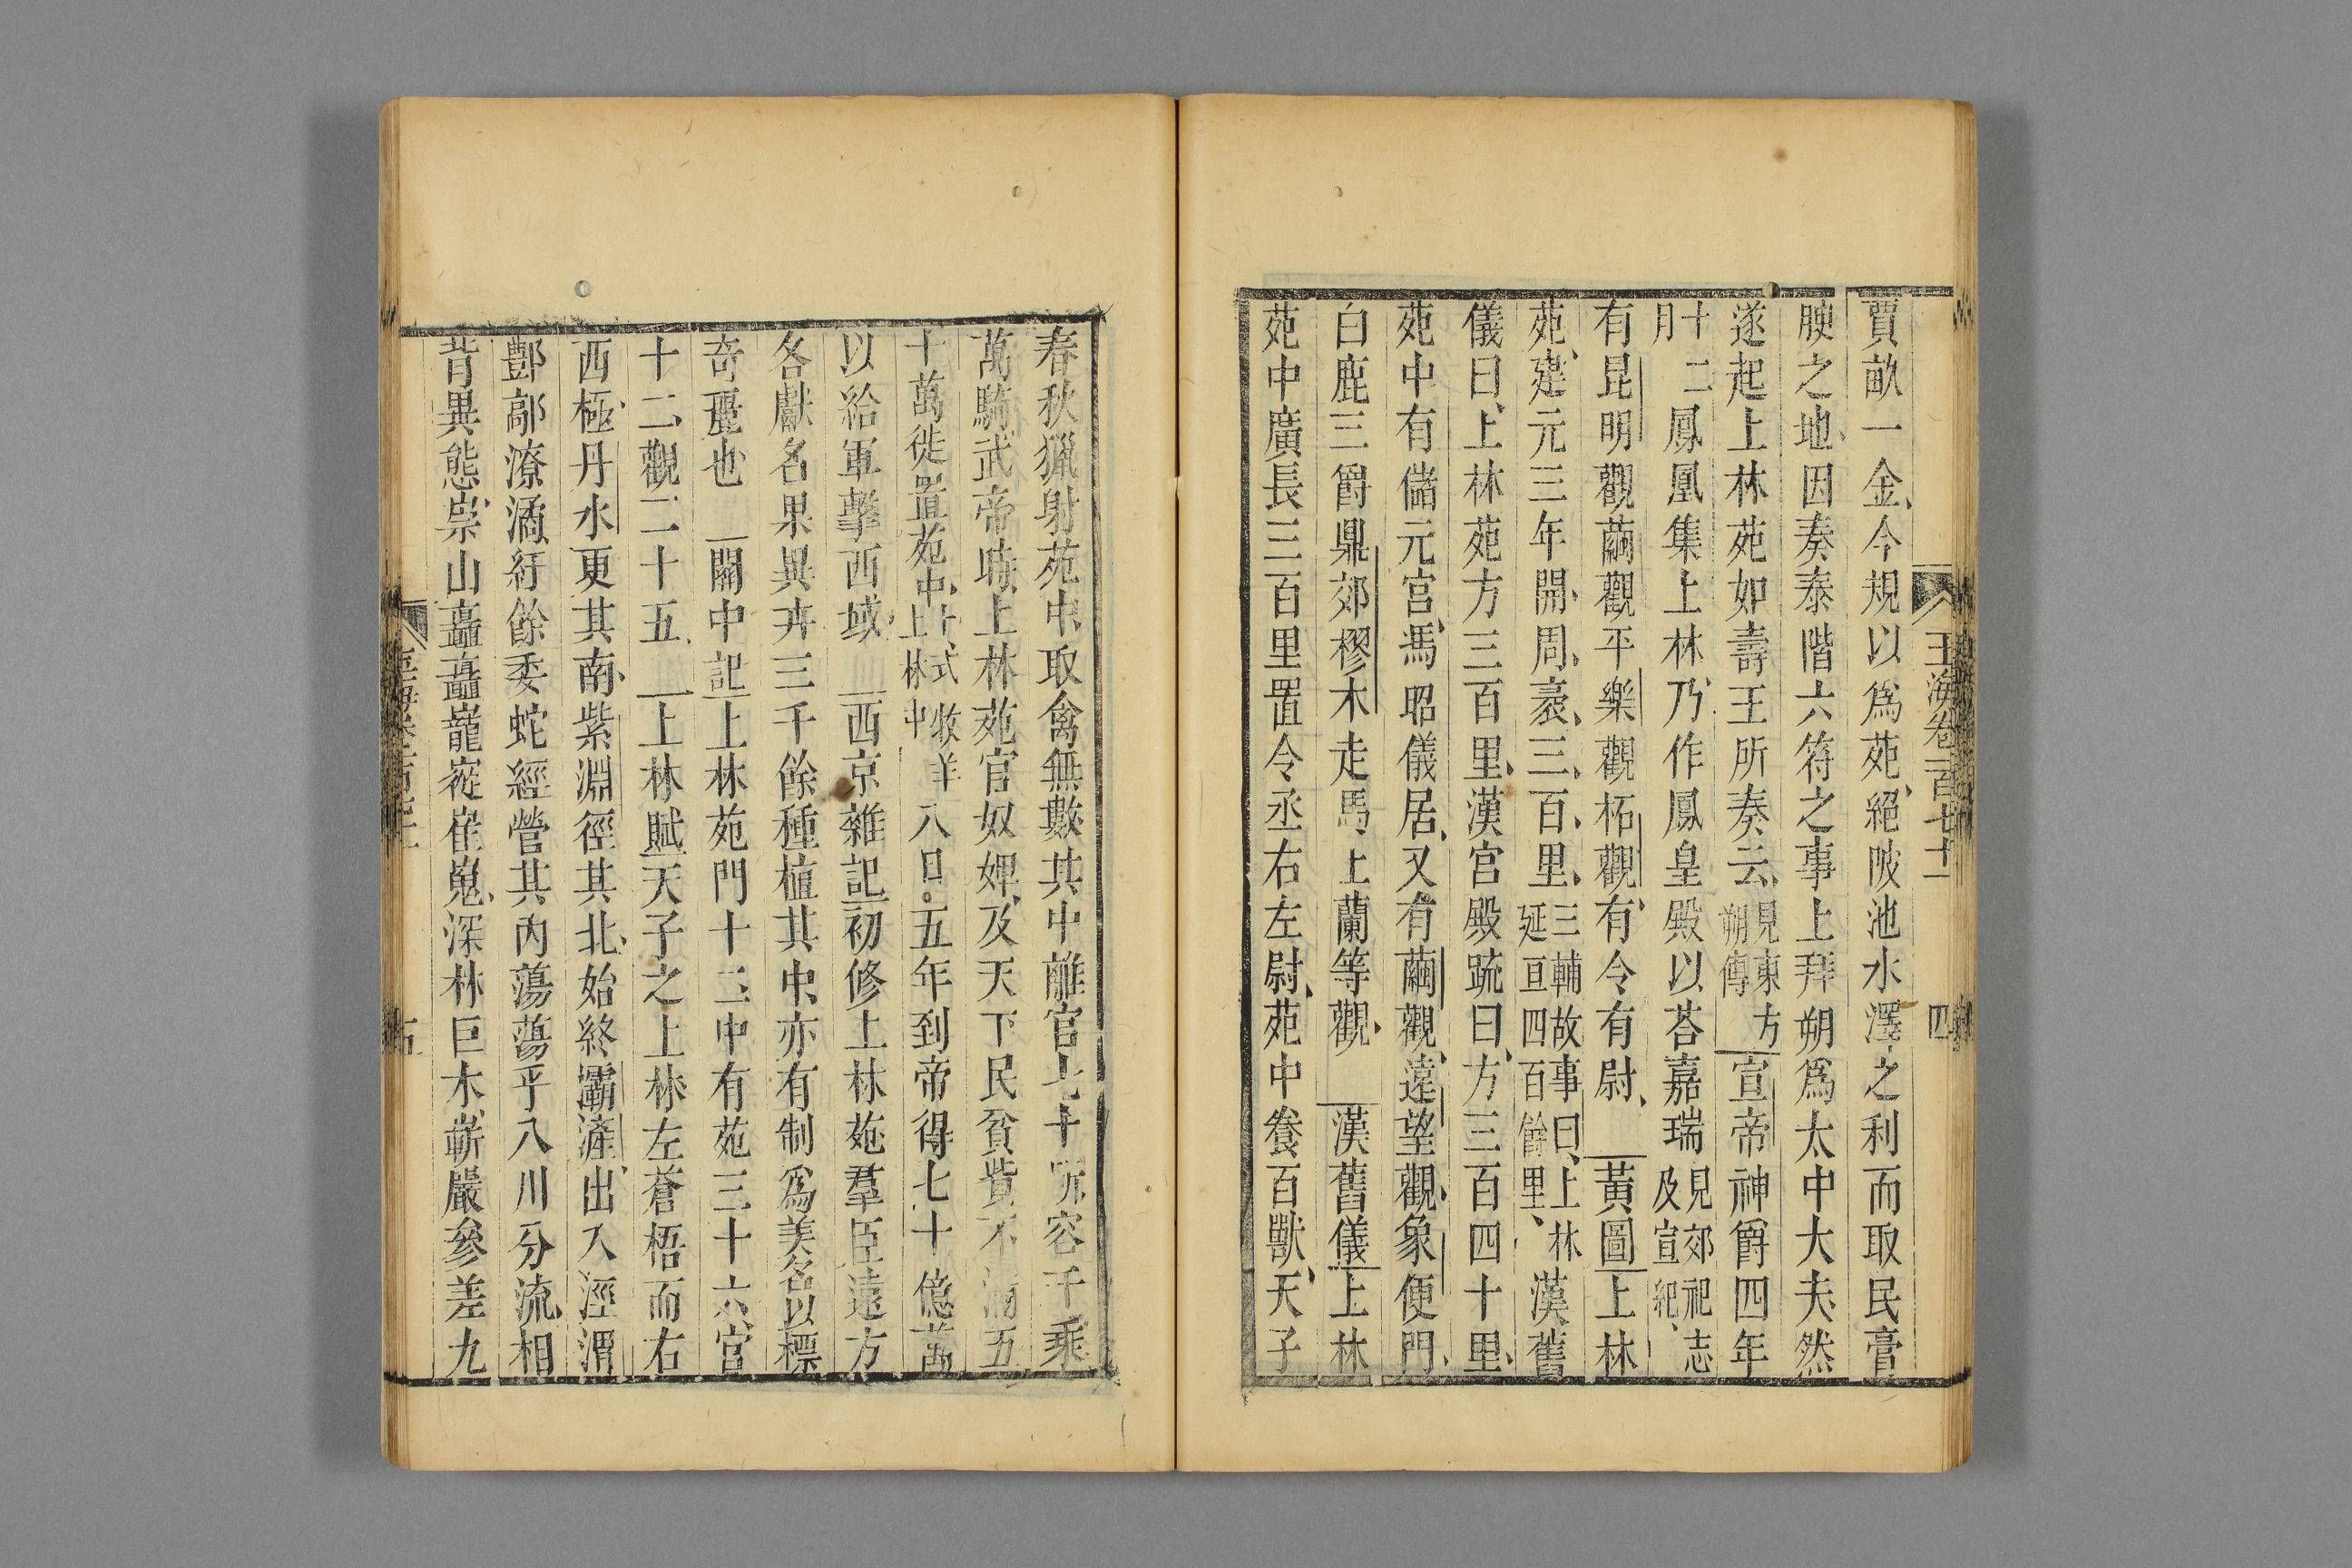 玉海卷一百七十一
四
賈畝一金今規以爲苑絕陂池水澤之利而取民膏
腴之地因奏泰階六符之事上拜朔爲太中大夫然
遂起上林苑如壽王所奏云見東方朔傳宣帝神爵四年
十二月鳳凰集上林乃作鳳皇殿以荅嘉瑞見郊祀志及宣紀
有昆明觀繭觀平樂觀柘觀有令有尉 黃圖上林
苑建元三年開周袤三百里三輔故事曰上林延亘四百餘里漢舊
儀曰上林苑方三百里漢宮殿疏曰方三百四十里
苑中有儲元宮馮昭儀居又有繭觀遠望觀象便門
白鹿三爵鼎郊樛木走馬上蘭等觀 漢舊儀上林
苑中廣長三百里置令丞右左尉苑中養百獸天子
春秋獵射苑中取禽無數其中離宮七十所容千乘
萬騎武帝時上林苑官奴婢及天下民貧貲不滿五
十萬徙置苑中卜式牧羊上林中人日五年到帝得七十億萬
以給軍擊西域 西京雜記初修上林苑羣臣遠方
各獻名果異卉三千餘種植其中亦有制爲美名以標
奇麗也 關中記上林苑門十二中有苑三十六宮
十二觀二十五 上林賦天子之上林左蒼梧而右
西極丹水更其南紫淵徑其北始終灞滻出入涇渭
酆鄗潦潏紆餘委蛇經營其內蕩蕩乎八川分流相
背異態崇山矗矗巃嵷崔嵬深林巨木嶄巖參差九
五